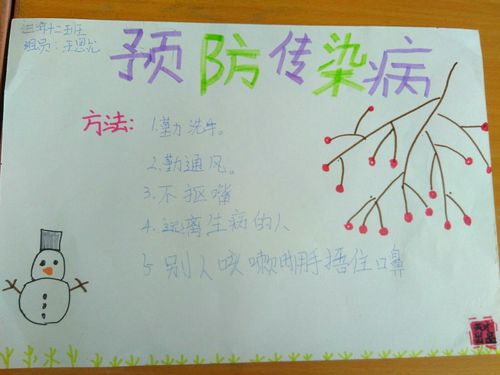 组员:王思
预防传染病
方法:1.勤洗手。
2.勤通风。
3.不抠嘴
4.远离生病的人
5别人咳嗽时用手捂住口鼻